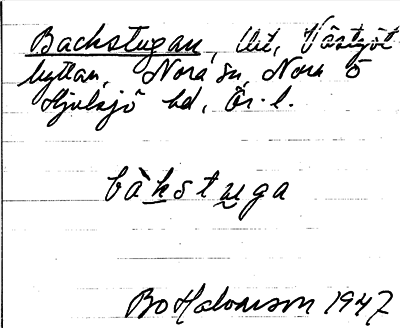 Backstugan, lht, Västgöt-
hyttan, Nora sn, Nora o
Hjulsjö hd, Ör. l.
bàkstuga
Bo Halvarson 1947